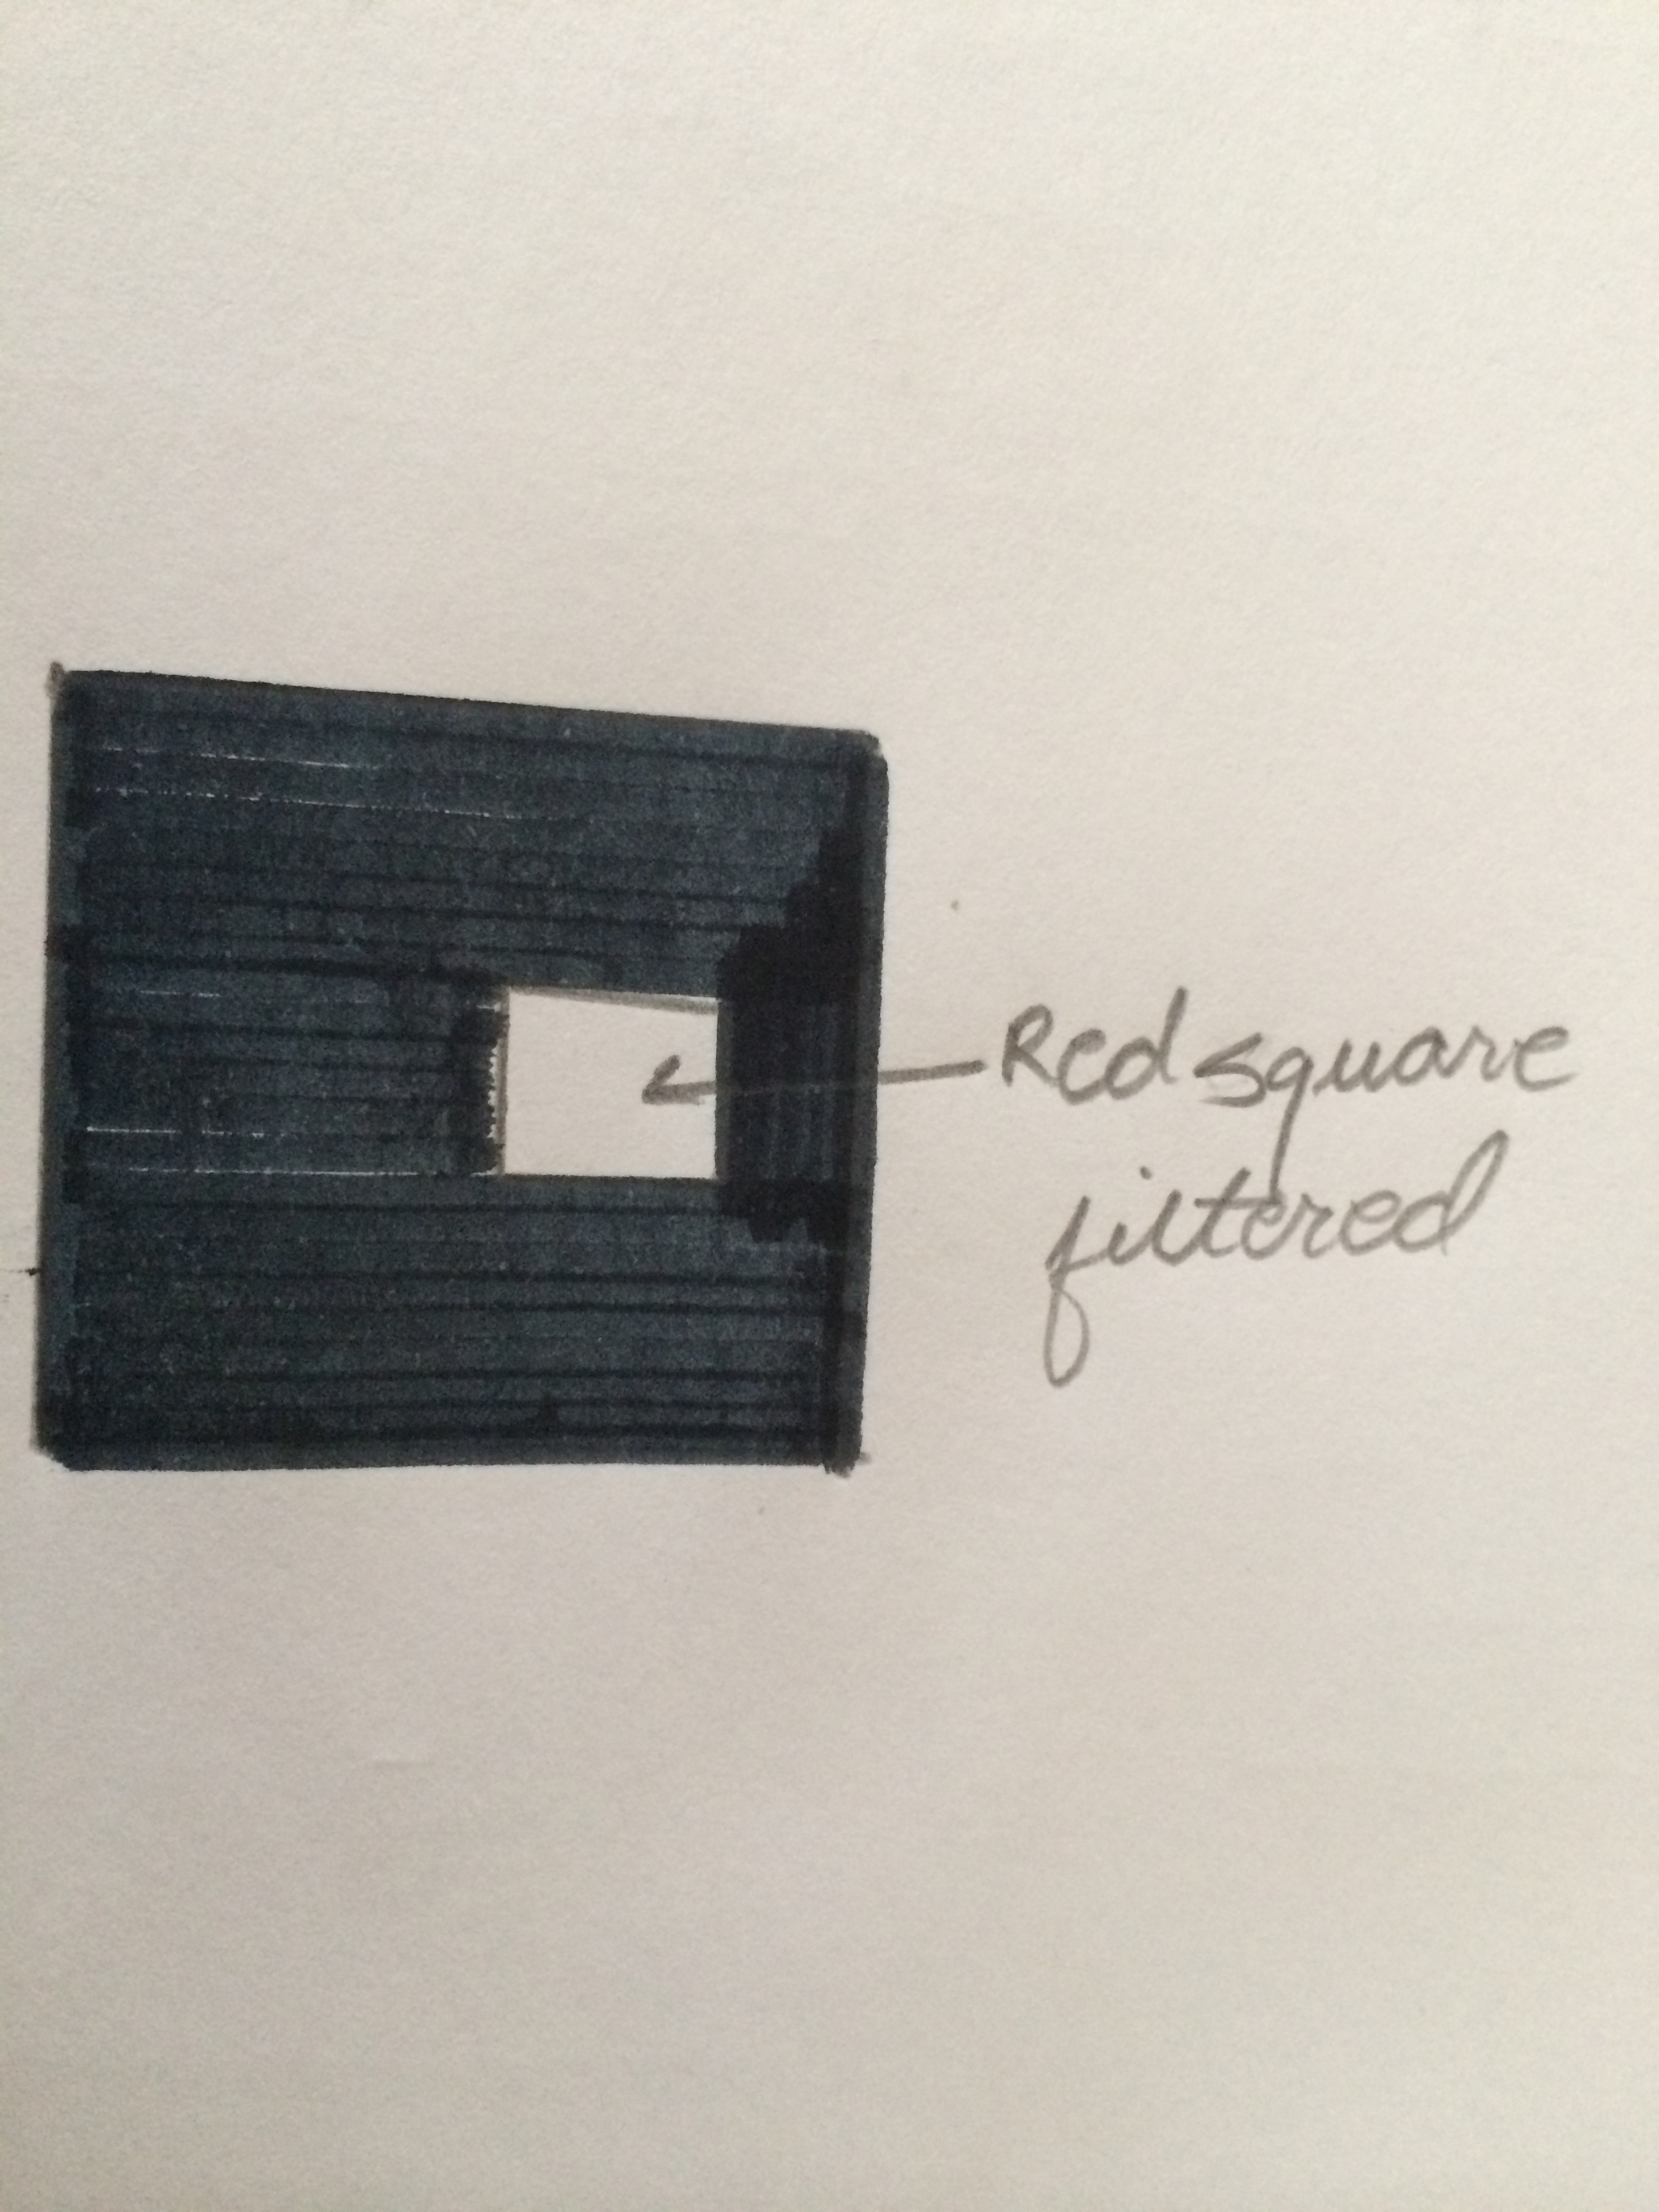 Red square
filtered